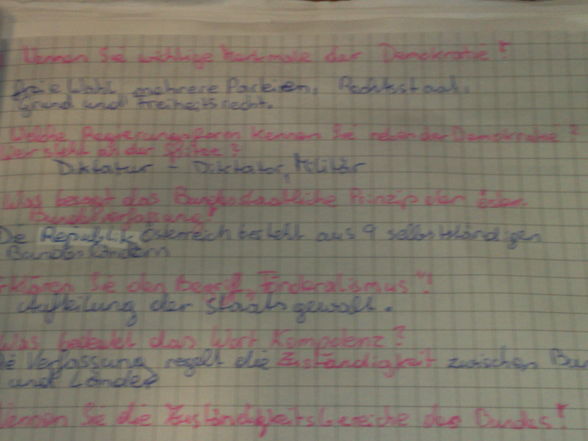 Nennen Sie wichtige Merkmale der Demokratie!
freie Wahl, mehrere Parteien, Rechtsstaat,
Grund und Freiheitsrecht.
Welche Regierungsform kennen Sie neben der Demokratie?
Wer steht an der Spitze?
Diktatur - Diktator, Militär
Was besagt das Bundesstaatliche Prinzip der
Bundesverfassung?
Die Republik Österreich besteht aus 9 selbstständigen
Bundesländern
Erklären Sie den Begriff "Förderalismus"!
Aufteilung der Staatsgewalt.
Was bedeutet das Wort Kompetenz?
Die Verfassung regelt die Zuständigkeit zwischen Bun
und Länder
Nennen Sie die Zuständigkeitsbereiche des Bundes!